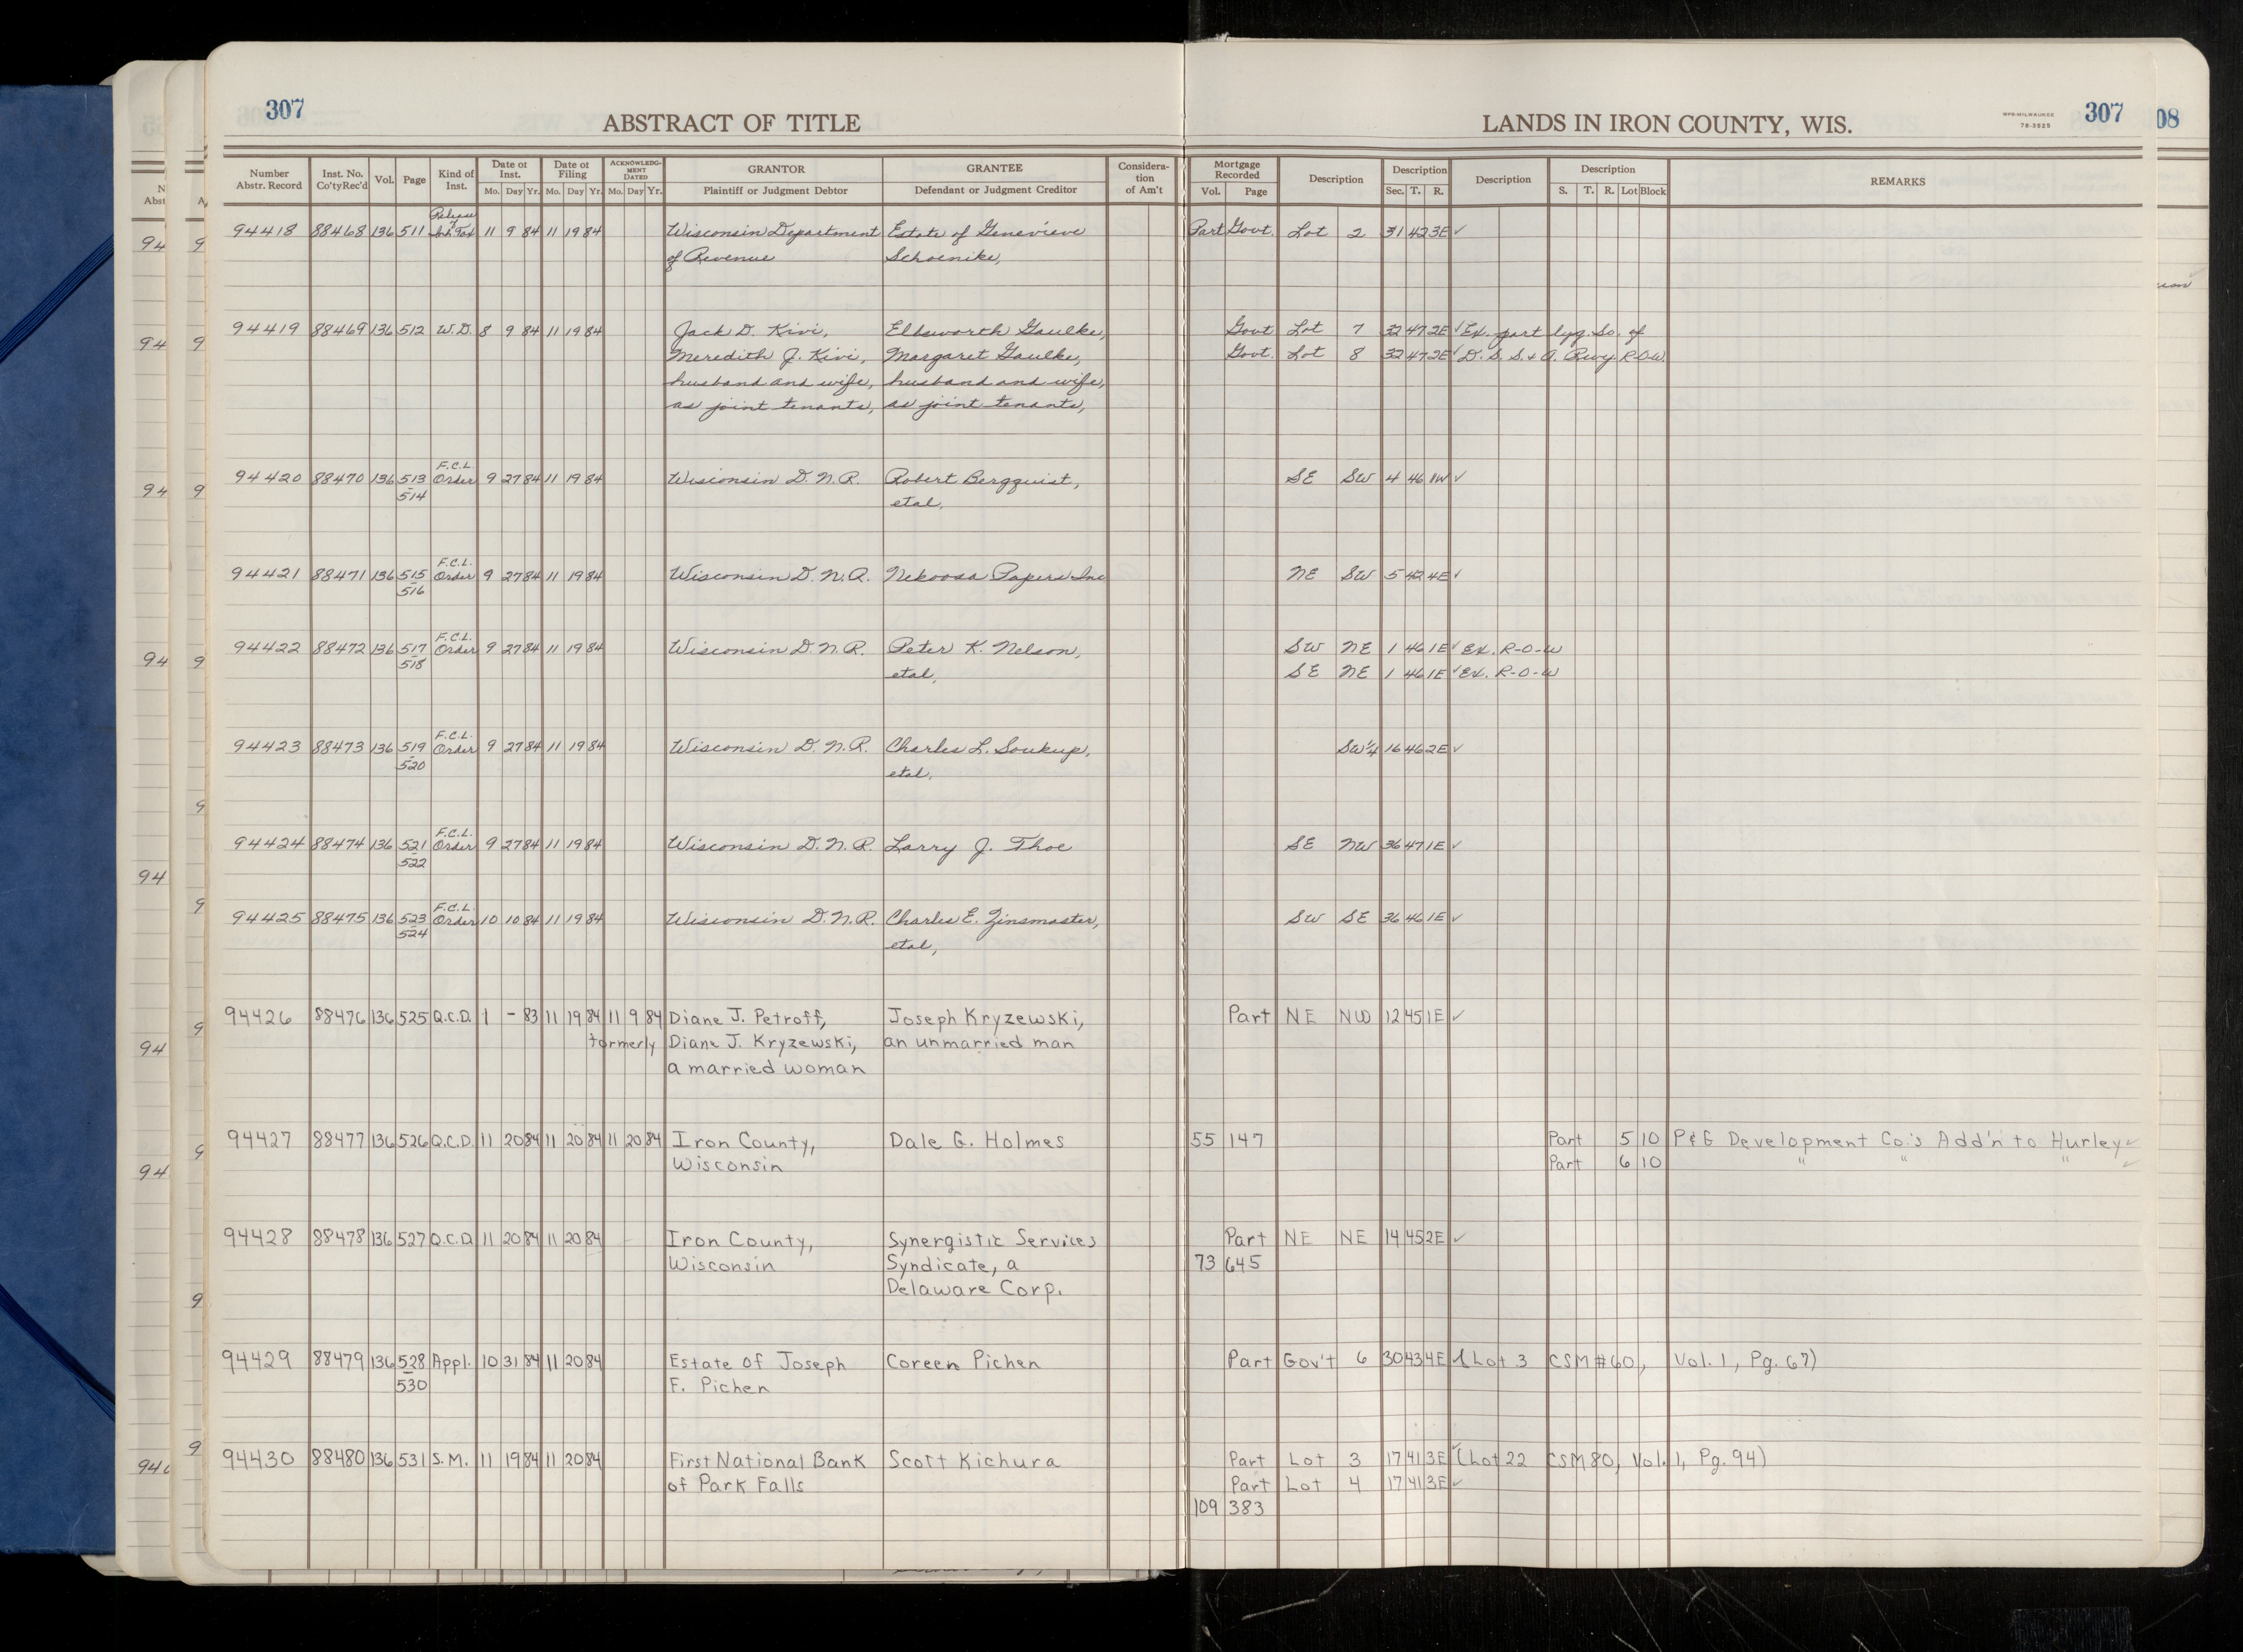 307
ABSTRACT OF TITLE
LANDS IN IRON COUNTY, WIS.
WPS-MILWAUKEE
76-3525
307
08
Number Abstr. Record Inst. No. Co'ty Rec'd Vol. Page Kind of Inst. Date of Inst. Mo. Day Yr. Date of Filing Mo. Day Yr. ACKNOWLEDGMENT DATED Mo. Day Yr. GRANTOR Plaintiff or Judgment Debtor GRANTEE Defendant or Judgment Creditor Consideration of Am't Mortgage Recorded Vol. Page Description Description Sec. T. R. Description Description S. T. R. Lot Block REMARKS
Release of
94418 88468 136 511 Inh. Tax 11 9 84 11 19 84 Wisconsin Department Estate of Genevieve Part Govt. Lot 2 31 42 3E ✓
of Revenue Schoenike,
94419 88469 136 512 W.D. 8 9 84 11 19 84 Jack D. Kivi, Ellsworth Gaulke, Govt Lot 7 32 47 2E ✓ Ex. part lyg. So. of
Meredith J. Kivi, Margaret Gaulke, Govt. Lot 8 32 47 2E ✓ D. S. S. & A. Rwy. R-O-W
husband and wife, husband and wife,
as joint tenants, as joint tenants,
F.C.L.
94420 88470 136 513 Order 9 27 84 11 19 84 Wisconsin D.N.R. Robert Bergquist, SE SW 4 46 1W ✓
514 etal,
F.C.L.
94421 88471 136 515 Order 9 27 84 11 19 84 Wisconsin D.N.R. Nekoosa Papers Inc NE SW 5 42 4E ✓
516
F.C.L.
94422 88472 136 517 Order 9 27 84 11 19 84 Wisconsin D.N.R. Peter K. Nelson, SW NE 1 46 1E ✓ Ex. R-O-W
518 etal, SE NE 1 46 1E ✓ Ex. R-O-W
F.C.L.
94423 88473 136 519 Order 9 27 84 11 19 84 Wisconsin D.N.R. Charles L. Soukup, SW¼ 16 46 2E ✓
520 etal,
F.C.L.
94424 88474 136 521 Order 9 27 84 11 19 84 Wisconsin D.N.R. Larry J. Thoe SE NW 36 47 1E ✓
522
F.C.L.
94425 88475 136 523 Order 10 10 84 11 19 84 Wisconsin D.N.R. Charles E. Zinsmaster, SW SE 36 46 1E ✓
524 etal,
94426 88476 136 525 Q.C.D. 1 - 83 11 19 84 11 9 84 Diane J. Petroff, Joseph Kryzewski, Part NE NW 12 45 1E ✓
formerly Diane J. Kryzewski, an unmarried man
a married woman
94427 88477 136 526 Q.C.D. 11 20 84 11 20 84 11 20 84 Iron County, Dale G. Holmes 55 147 Part 5 10 P&G Development Co.'s Add'n to Hurley ✓
Wisconsin Part 6 10 " " " ✓
94428 88478 136 527 Q.C.D. 11 20 84 11 20 84 Iron County, Synergistic Services Part NE NE 14 45 2E ✓
Wisconsin Syndicate, a 73 645
Delaware Corp.
94429 88479 136 528 Appl. 10 31 84 11 20 84 Estate of Joseph Coreen Pichen Part Gov't 6 30 43 4E (Lot 3 CSM #60, Vol. 1, Pg. 67)
530 F. Pichen
94430 88480 136 531 S.M. 11 19 84 11 20 84 First National Bank Scott Kichura Part Lot 3 17 41 3E ✓ (Lot 22 CSM 80, Vol. 1, Pg. 94)
of Park Falls Part Lot 4 17 41 3E ✓
109 383